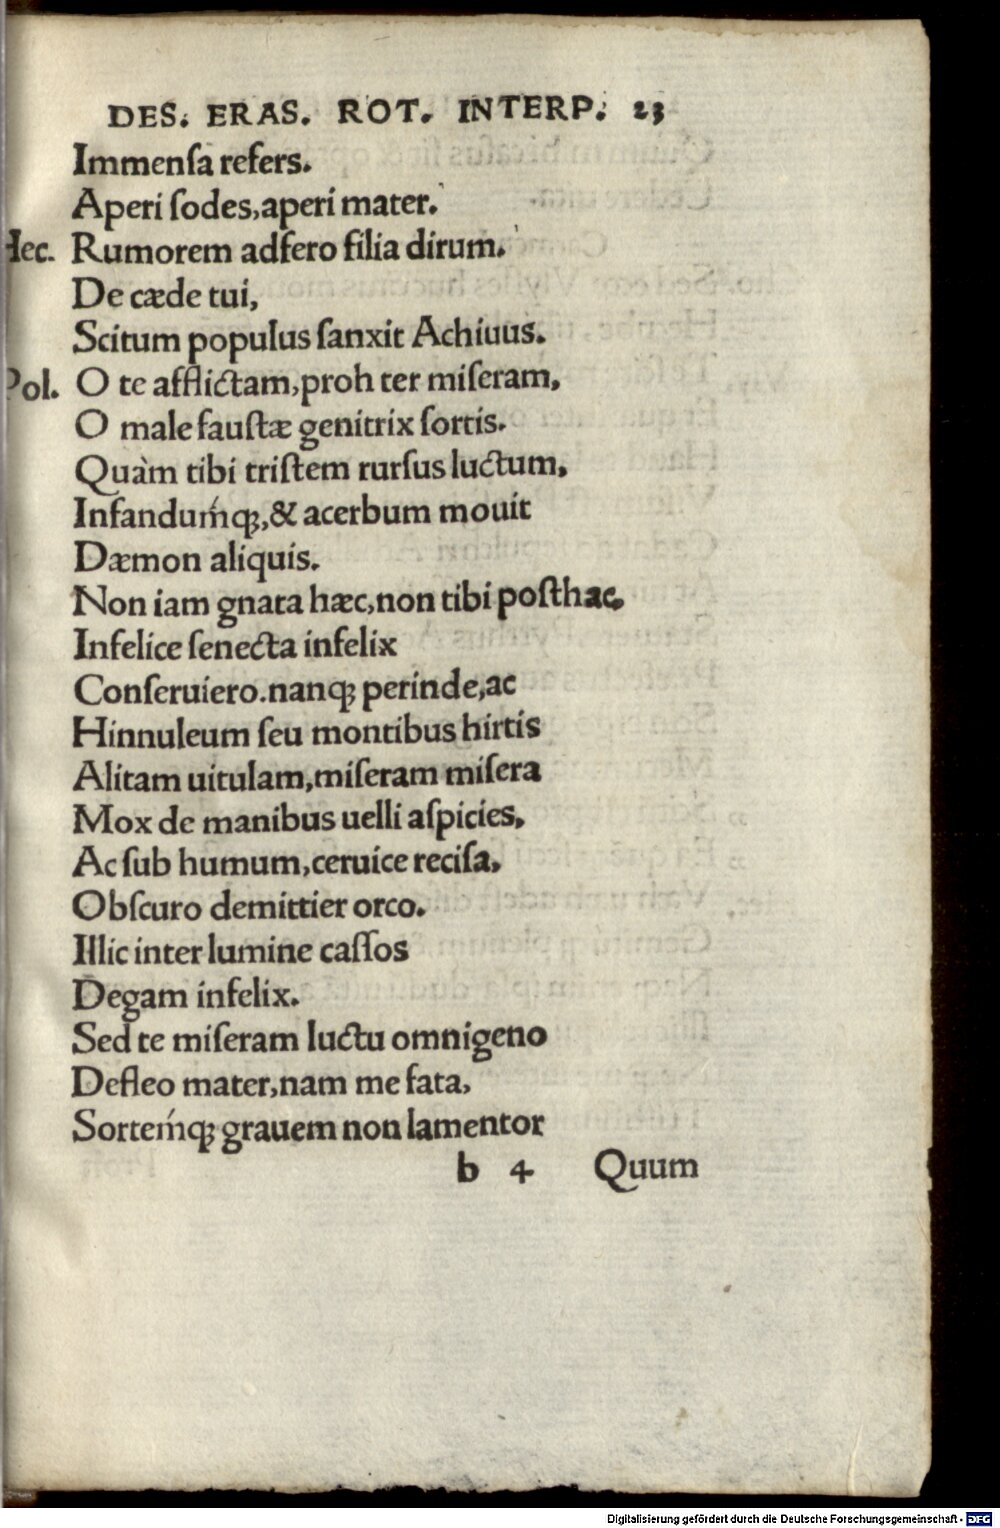 DES. ERAS. ROT. INTERP. 23
Immenſa refers.
Aperi ſodes,aperi mater.
Hec. Rumorem adfero filia dirum.
De cæde tui,
Scitum populus ſanxit Achiuus.
Pol. O te afflictam,proh ter miſeram,
O male fauſtæ genitrix ſortis.
Quàm tibi triſtem rurſus luctum,
Infandumq́ꝫ,& acerbum mouit
Dæmon aliquis.
Non iam gnata hæc,non tibi poſthac,
Infelice ſenecta infelix
Conſeruiero.nanqꝫ perinde,ac
Hinnuleum ſeu montibus hirtis
Alitam uitulam,miſeram miſera
Mox de manibus uelli aſpicies,
Ac ſub humum,ceruice reciſa,
Obſcuro demittier orco.
Illic inter lumine caſſos
Degam infelix.
Sed te miſeram luctu omnigeno
Defleo mater,nam me fata,
Sortemq́ꝫ grauem non lamentor
b 4 Quum
Digitalisierung gefördert durch die Deutsche Forschungsgemeinschaft - DFG